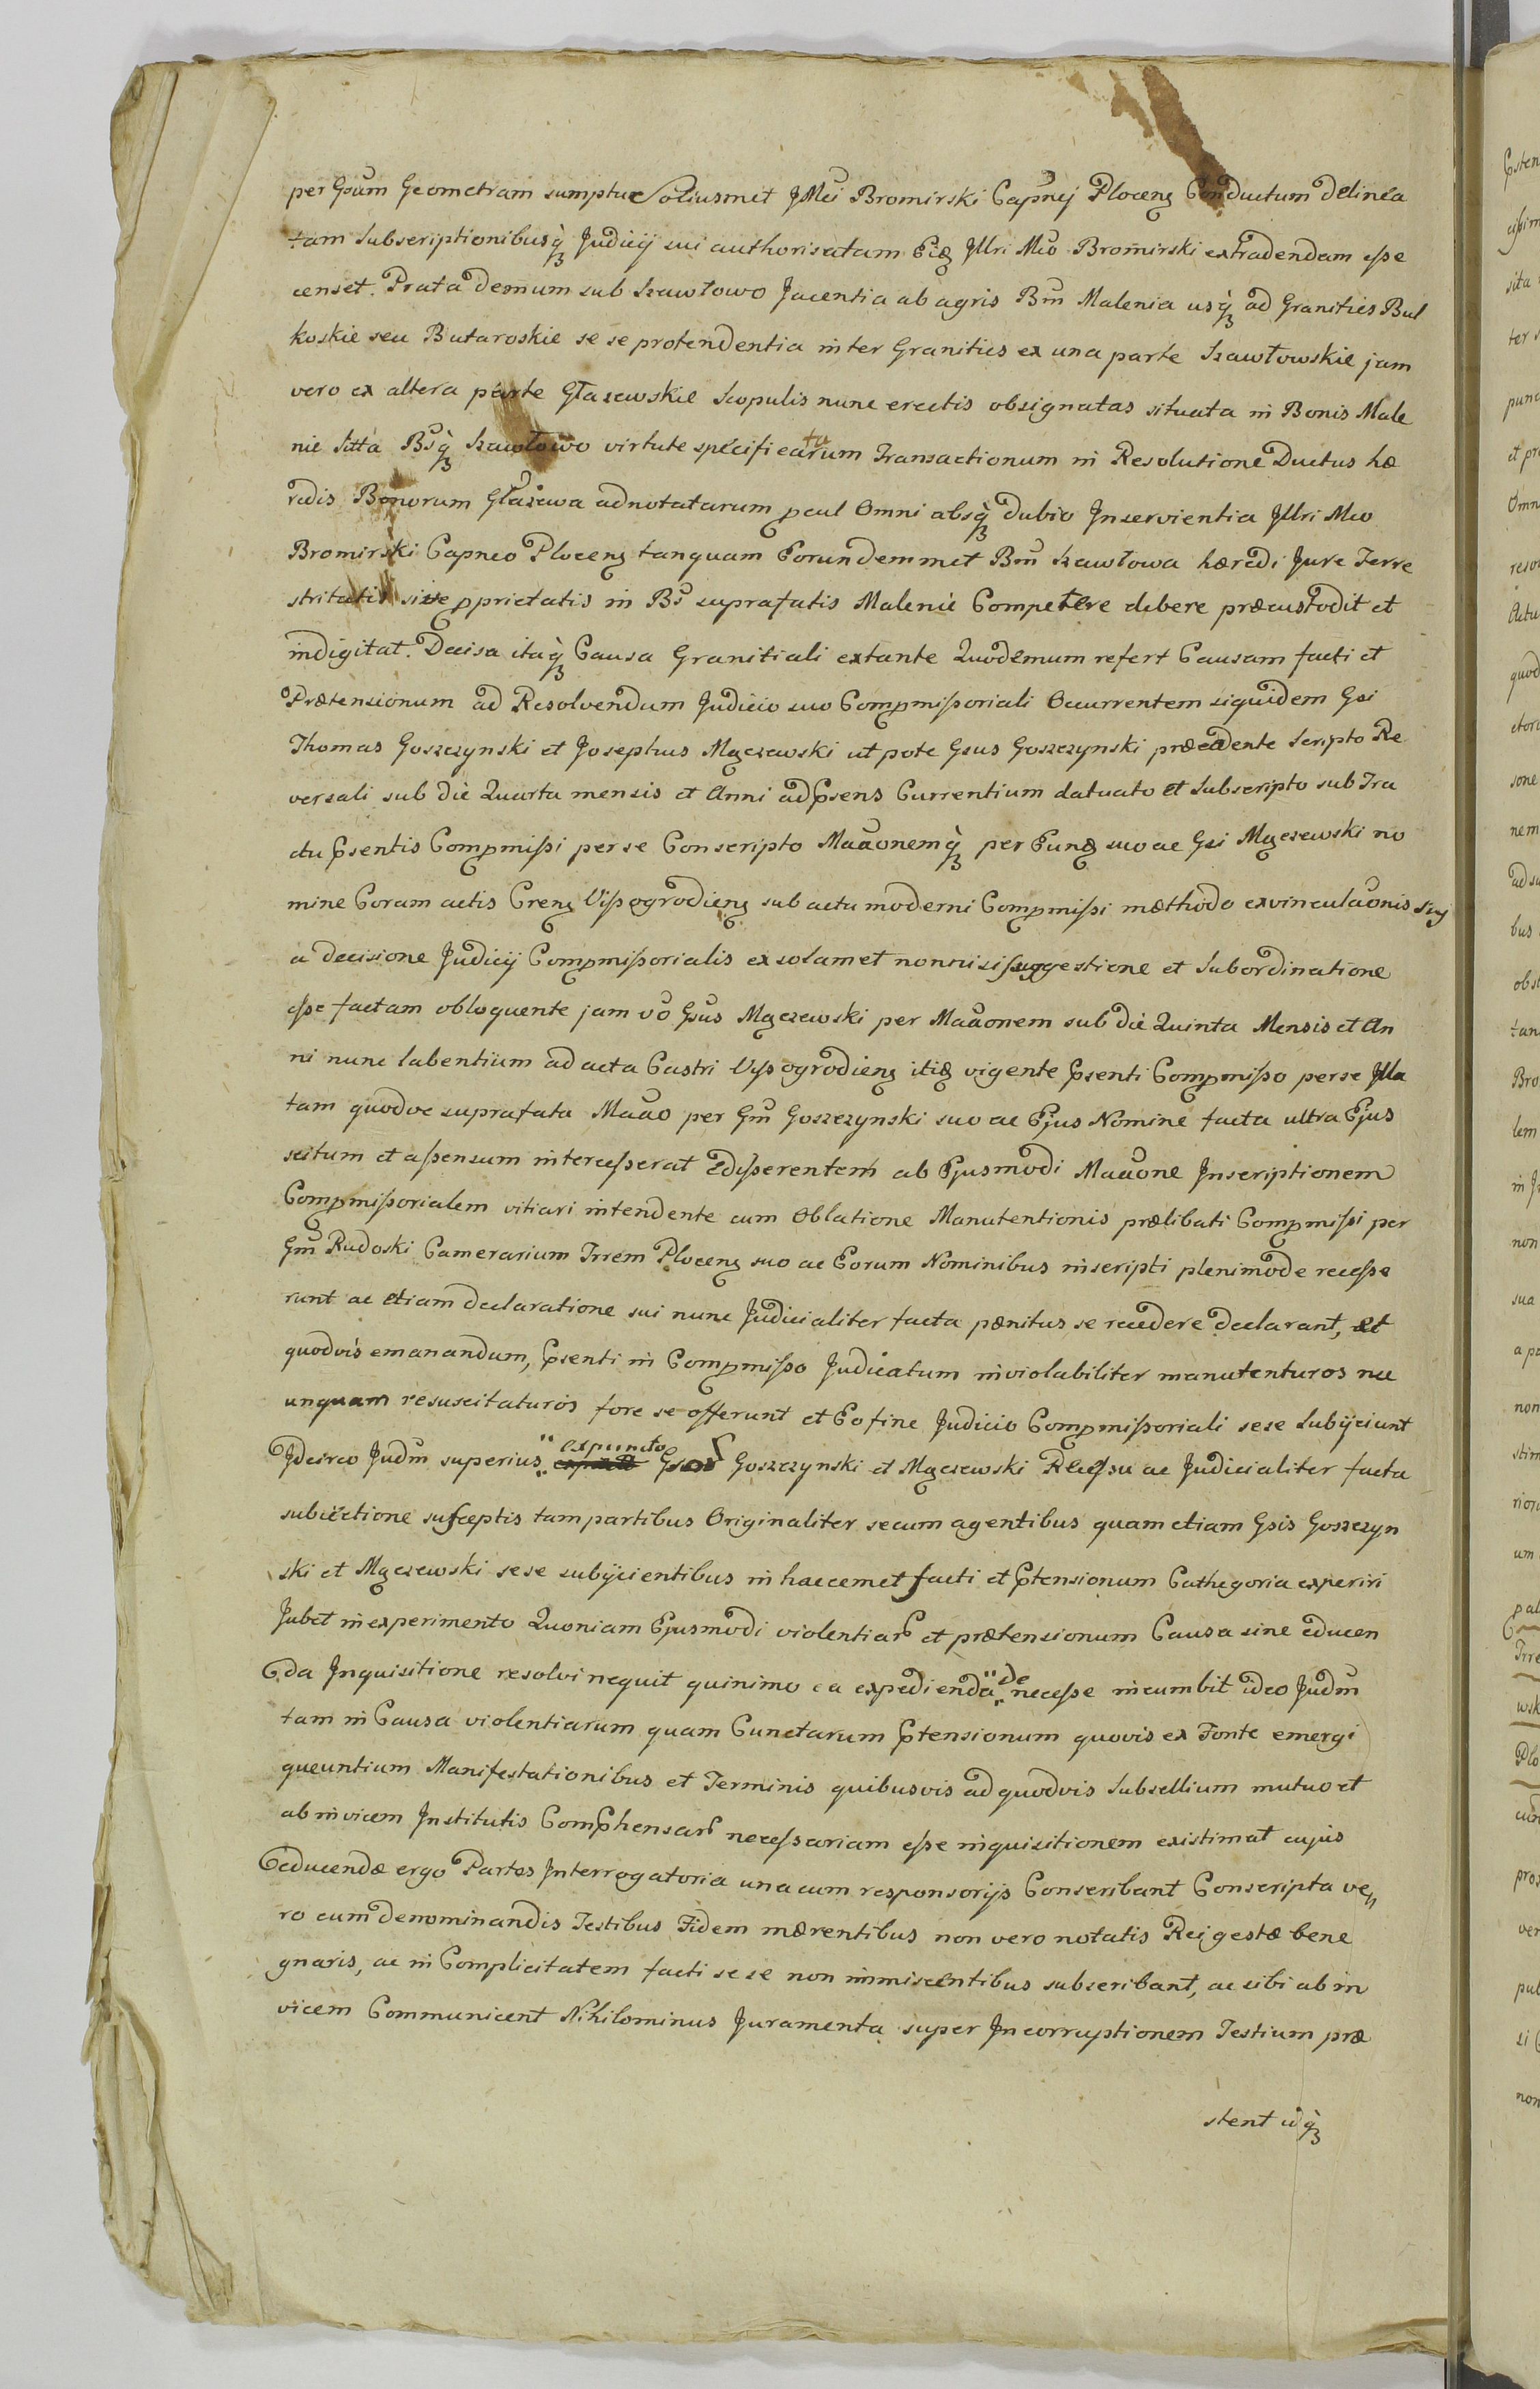 per Gsum Geometram sumptu Soliusmet JMci Bromirski Capnej Plocens Conductum delinea
tam Subscriptionibusq̀ Judicij sui authorisatam Eid Jllri Mco Bromirski extradendam esse
censet. Prata demum sub Szawłowo Jacentia ab agris Bm̃ Malenia usq̀ ad Granities Bul
koskie seu Butaroskie se se protendentia inter Granities ex una parte Szawłowskie jam
vero ex altera parte Głazewskie Scopulis nunc erectis obsignatas situata in Bonis Male
nie Sitta Bsq̀ Szawłowo virtute specificatarum Transactionum in Resolutione Ductus hæ
redis Bonorum Głazewa adnotatarum pcul Omni absq̀ dubio Jnservientia Jllri Mco
Bromirski Capneo Plocens tanquam Eorundemmet Bm̃ Szawłowa hæredi Jure Terre
stritatis sive pprietatis in Bs suprafatis Malenie Competere debere præcustodit et
indigitat. Decisa itaq̀ Causa Granitiali extante Quodemum refert Causam facti et
Prætensionum ad Resolvendum Judicio suo Compmissoriali Occurrentem siquidem Gsi
Thomas Goszczynski et Josephus Mączewski utpote Gsus Goszczynski præcedente Scripto Re
versali sub die Quarta mensis et Anni ad Psens Currentium datuato et Subscripto sub Tra
ctu Psentis Compmissi per se Conscripto Maãonemq̀ per Eund suo ac Gsi Mączewski no
mine Coram actis Crens Vissogrodiens sub actu moderni Compmissi mæthodo exvinculaõnis sui
a decisione Judicij Compmissorialis ex solamet nonnisi suggestione et Subordinatione
esse factam obloquente jam vo Gsus Mączewski per Maãonem sub die Quinta Mensis et An
ni nunc labentium ad acta Castri Vyssogrodiens itid vigente Psenti Compmisso per se Jlla
tam quodve suprafata Maão per Gm̃ Goszczynski suo ac Ejus Nomine facta ultra Ejus
scitum et assensum intercesserat Edisserentem ab Ejusmodi Maãone Jnscriptionem
Compmissorialem vitiari intendente cum Oblatione Manutentionis prælibati Compmissi per
Gm̃ Rudoski Camerarium Trrem Plocens suo ac Eorum Nominibus inscripti plenimode recesse
runt ac etiam declaratione sui nunc Judicialiter facta pænitus se recedere declarant, et
quodvis emanandum, Psenti in Compmisso Judicatum inviolabiliter manutenturos nec
unquam resuscitaturos fore se offerunt et Eo fine Judicio Compmissoriali sese Subijciunt
Jdcirco Judm superius expuncto Gsor Goszczynski et Mączewski Recessu ac Judicialiter facta
subiectione susceptis tam partibus Originaliter secum agentibus quam etiam Gsis Goszczyn
ski et Mączewski sese subijcientibus in haecemet facti et Ptensionum Cathegoria experiri
Jubet in experimento Quoniam Ejusmodi violentiar et prætensionum Causa sine educen
da Jnquisitione resolvi nequit quinimo ea expedienda de necesse incumbit ideo Judm
tam in Causa violentiarum quam Cunctarum Ptensionum quovis ex Fonte emergi
queuntium Manifestationibus et Terminis quibusvis ad quodvis Subsellium mutuo et
ab invicem Jnstitutis ComPhensar necessariam esse inquisitionem existimat cujus
educendæ ergo Partes Jnterrogatoria una cum responsorijs Conscribant Conscripta ve
ro cum denominandis Testibus Fidem mærentibus non vero notatis Rei gestæ bene
gnaris, ac in Complicitatem facti se se non immiscentibus subscribant, ac sibi ab in
vicem Communicent Nihilominus Juramenta super Jncorruptionem Testium præ
stent idq̀